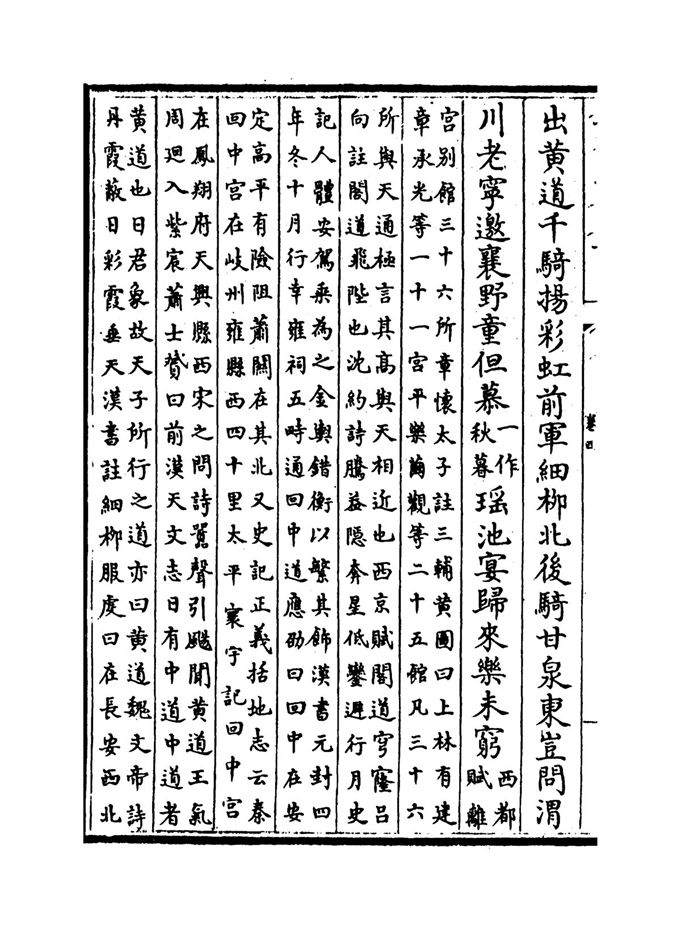 出黄道千騎揚彩虹前軍細柳北後騎甘泉東豈問渭
川老寧邀襄野童但慕一作秋暮瑶池宴歸來樂未窮西都賦離
宫别館三十六所章懷太子註三輔黄圖曰上林有建
章承光等一十一宫平樂繭觀等二十五館凡三十六
所與天通極言其高與天相近也西京賦閣道穹窿吕
向註閣道飛陛也沈約詩騰葢隱奔星低鑾避行月史
記人體安駕乘為之金輿錯衡以繁其飾漢書元封四
年冬十月行幸雍祠五畤通回中道應劭曰回中在安
定高平有險阻蕭關在其北又史記正義括地志云秦
回中宫在岐州雍縣西四十里太平寰宇記回中宫
在鳳翔府天興縣西宋之問詩囂聲引颺聞黄道王氣
周迴入紫宸蕭士贇曰前漢天文志日有中道中道者
黄道也日君象故天子所行之道亦曰黄道魏文帝詩
丹霞蔽日彩霞垂天漢書註細柳服虔曰在長安西北
卷四